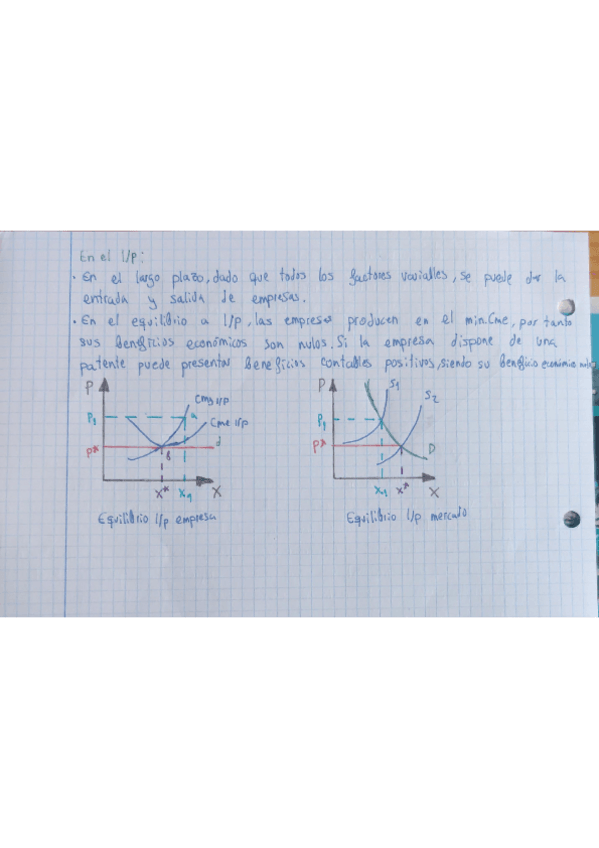 En el l/p:
· En el largo plazo, dado que todos los factores variables, se puede dar la
entrada y salida de empresas.
· En el equilibrio a l/p, las empresas producen en el min.Cme, por tanto
sus beneficios económicos son nulos. Si la empresa dispone de una
patente puede presentar beneficios contables positivos, siendo su beneficio económico nulo
P
Cmg l/p
P1
a
Cme l/p
P*
d
b
X*
X1
X
Equilibrio l/p empresa
P
S1
S2
P1
P*
D
X1
X*
X
Equilibrio l/p mercado